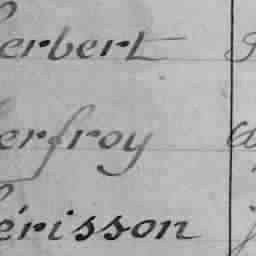 Herbert
Herfroy
Hérisson